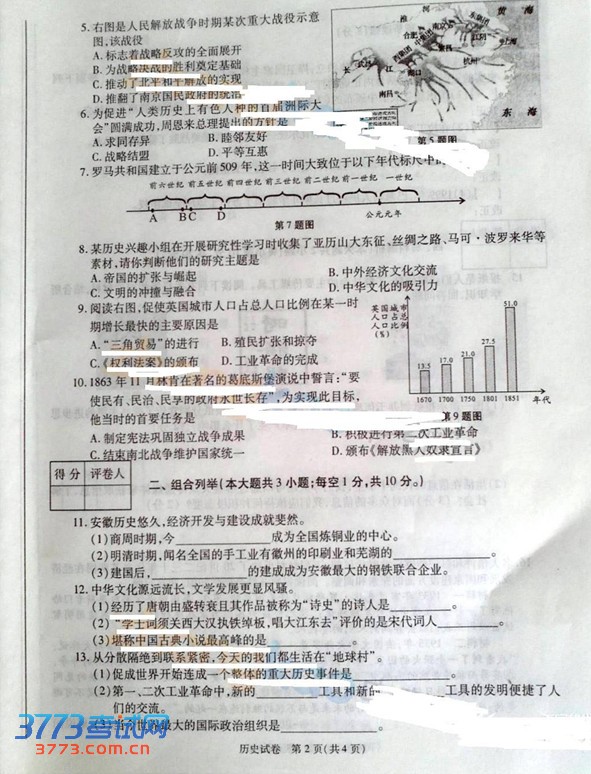 5. 右图是人民解放战争时期某次重大战役示意
图,该战役
A. 标志着战略反攻的全面展开
B. 为战略决战的胜利奠定基础
C. 推动了北平和平解放的实现
D. 推翻了南京国民政府的统治
淮 河 黄 海
合肥 东集团 中集团 西集团
江阴
上海
芜湖
杭州
湖口
南昌
长 江
东 海
第5题图
6. 为促进“人类历史上有色人种的首届洲际大
会”圆满成功,周恩来总理提出的方针是
A. 求同存异 B. 睦邻友好
C. 战略结盟 D. 平等互惠
7. 罗马共和国建立于公元前 509 年,这一时间大致位于以下年代标尺中的
前六世纪 前五世纪 前四世纪 前三世纪 前二世纪 前一世纪 一世纪
A B C D 公元元年
第7题图
8. 某历史兴趣小组在开展研究性学习时收集了亚历山大东征、丝绸之路、马可·波罗来华等
素材,请你判断他们的研究主题是
A. 帝国的扩张与崛起 B. 中外经济文化交流
C. 文明的冲撞与融合 D. 中华文化的吸引力
9. 阅读右图,促使英国城市人口占总人口比例在某一时
期增长最快的主要原因是
A. “三角贸易”的进行 B. 殖民扩张和掠夺
C.《权利法案》的颁布 D. 工业革命的完成
英国城市
人口占总
人口比例
(%)
13.5 17.0 21.0 27.5 51.0
1670 1700 1750 1801 1851 年代
第9题图
10. 1863 年 11 月林肯在著名的葛底斯堡演说中誓言:“要
使民有、民治、民享的政府永世长存”,为实现此目标,
他当时的首要任务是
A. 制定宪法巩固独立战争成果 B. 积极进行第二次工业革命
C. 结束南北战争维护国家统一 D. 颁布《解放黑人奴隶宣言》
得 分 评卷人
二、组合列举(本大题共 3 小题;每空 1 分,共 10 分。)
11. 安徽历史悠久,经济开发与建设成就斐然。
(1)商周时期,今____________成为全国炼铜业的中心。
(2)明清时期,闻名全国的手工业有徽州的印刷业和芜湖的____________。
(3)建国后,____________的建成成为安徽最大的钢铁联合企业。
12. 中华文化源远流长,文学发展更显风骚。
(1)经历了唐朝由盛转衰且其作品被称为“诗史”的诗人是____________。
(2)“学士词须关西大汉执铁绰板,唱大江东去”评价的是宋代词人____________。
(3)堪称中国古典小说最高峰的是____________。
13. 从分散隔绝到联系紧密,今天的我们都生活在“地球村”。
(1)促成世界开始连成一个整体的重大历史事件是____________。
(2)第一、二次工业革命中,新的____________工具和新的____________工具的发明便捷了人
们的交流。
(3)当今世界最大的国际政治组织是____________。
3773考试网
3773.com.cn
历史试卷 第 2 页(共 4 页)